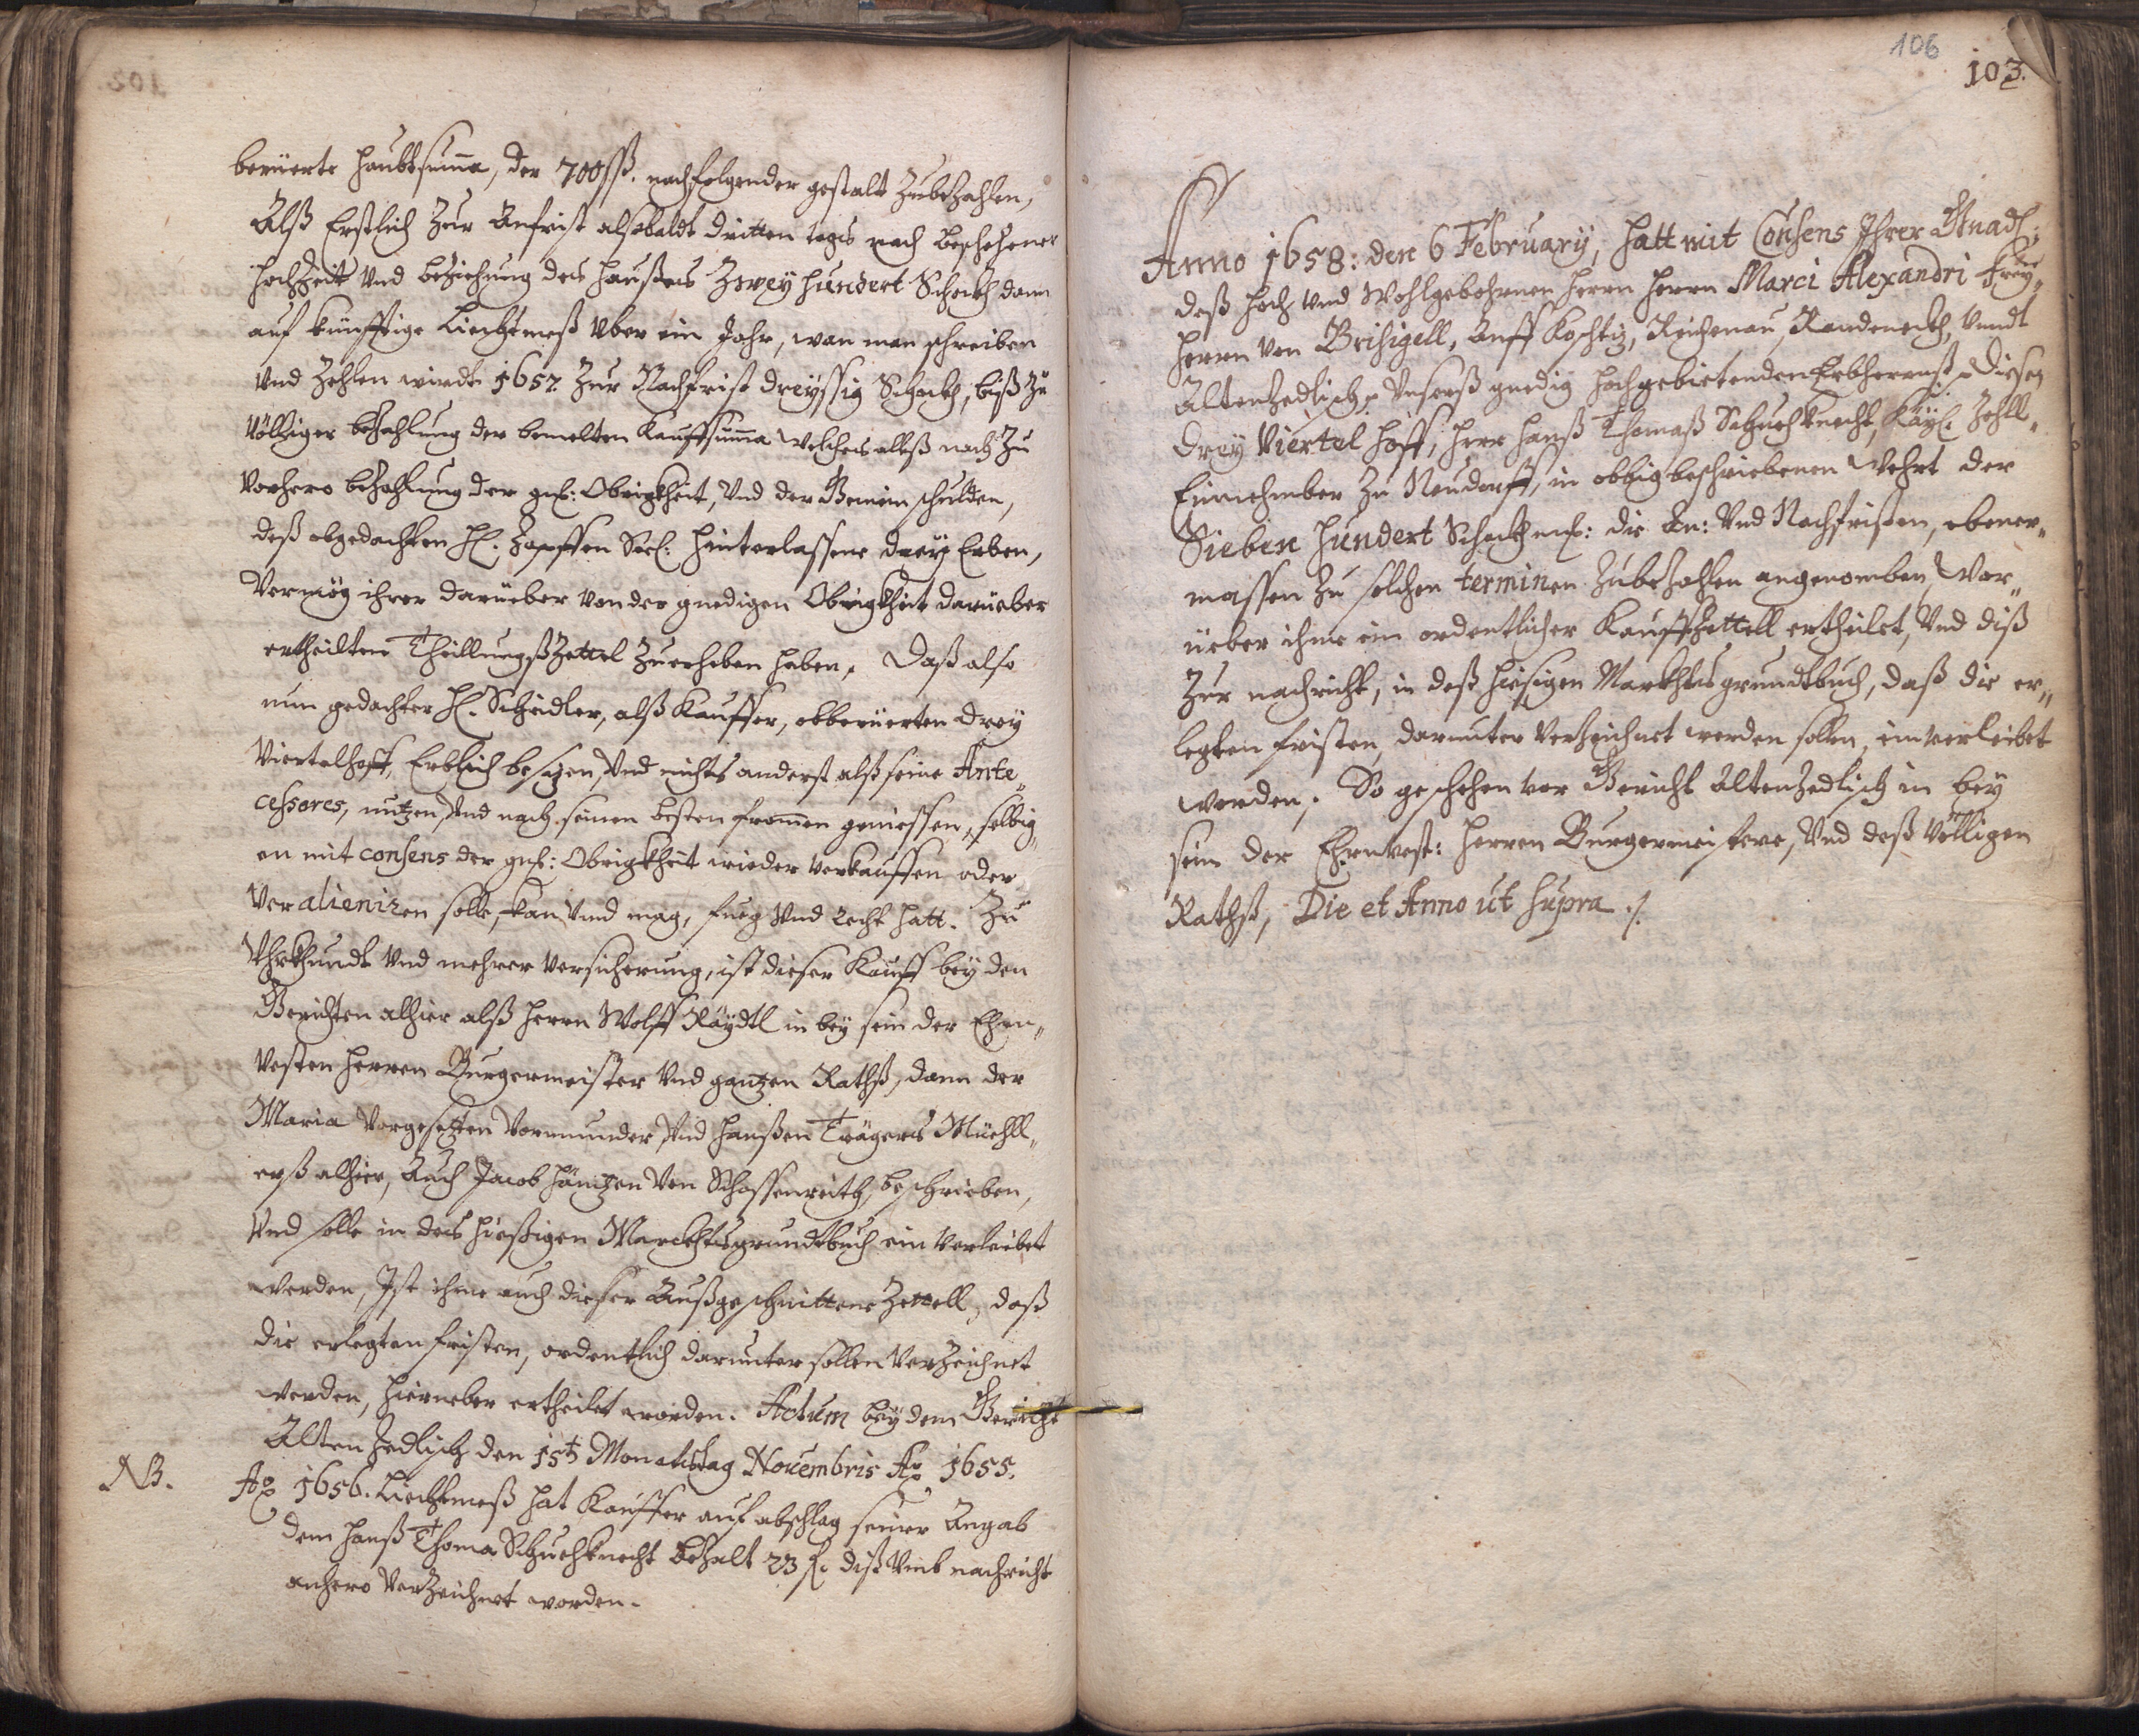 berüerte Haubtsuma, der 700 ßß. nachfolgender gestalt Zubezahlen,
Alß Erstlich Zur Anfrist alsobaldt dritten tags nach beschehener
Hochzeit Und beziehung des Haußes Zwey hundert Schockh dann
auf künfftige Liechtmeß Über ein Jahr, wan man schreiben
Und Zehlen wirdt 1657 Zur Nachfrist dreyssig Schockh, biß Zu
Völliger bezahlung der bemelten Kauffsumma welches alleß nach Zu
Vorhero bezahlung der gnd: Obrigkheit, Und der Gemein schulden,
deß obgedachten Hl. Zapffen Seel: Hinterlassene drey Erben,
Vermög ihrer darüeber von der gnedigen Obrigkheit darüeber
ertheilten TheillungßZettel Zuerheben haben. Daß also
nun gedachter Hl. Scheidler, alß Kauffer, obberüerten drey
Viertelhoff, Erblich besizen, Und nichts anderst alß seine Ante„
cessores, nutzen, Und nach seinen besten fromen geniessen, selbig„
en mit consens der gnd: Obrigkheit wieder verkauffen oder
Veralieniren solle, kan Und mag, fueg Und Recht hatt. Zu
Uhrkhundt Und mehrer Versicherung, ist dieser Kauff bey den
Gerichten alhier alß Herrn Wolff Räydtl in bey sein der Ehrn„
Vesten Herren Burgermeister Und gantzen Rathß, dann der
Maria Vorgesetzten Vormunder, Und Hanßen Trägers Müehll„
erß alhier, Auch Jacob Häintzen Von Schossenreith, beschrieben,
Und solle in das hießigen Marckhtsgrundtbuch ein Verleibet
werden, Ist ihme auch dieser Außgeschnittene Zettell, daß
die erlegten fristen, ordentlich darunter sollen Verzeichnet
werden, hierueber ertheilet worden. Actum bey dem Gericht
Alten Zedlisch den 15t Monatstag Novembris Ao 1655.
NB. Ao 1656. Liechtmeß hat Kauffer auf abschlag seiner Angab
dem Hanß Thoma Schuehknecht bezalt 23 fl. diß Umb nachricht
anhero Verzeichnet worden.
106
103.
Anno 1658: den 6 February, hatt mit Consens Ihrer Gnadl:
deß Hoch Und Wohlgebohrnen Herrn Herrn Marci Alexandri Frey„
Herrn von Brisigell, Auff Koschtiz, Reichenau, Rardeneckh, Undt
Altenzedlisch, Unserß gnedig hochgebietenden Erbherrnß, Diesen
drey Viertel Hoff, Herr Hanß Thomaß Schuehknecht, Käyl. Zohll„
Einnehmber Zu Neudorff, in obbigbeschriebenen Wehrt der
Sieben Hundert Schockh mß: die An: Und Nachfristen, ebener„
massen Zu solchen terminen Zubezahlen angenomben, War„
üeber ihme ein ordentlicher Kauffzettell ertheilet, Und diß
Zur nachricht, in deß hiesigen Markhtsgrundtbuch, daß die er„
legten fristen, darunter Verzeichnet werden sollen, einverleibet
worden. So geschehen vor Gericht Altenzedlisch in bey
sein der Ehrnvest: Herren Burgermeistere, Und deß Völligen
Rathß, Die et Anno ut supra ./.